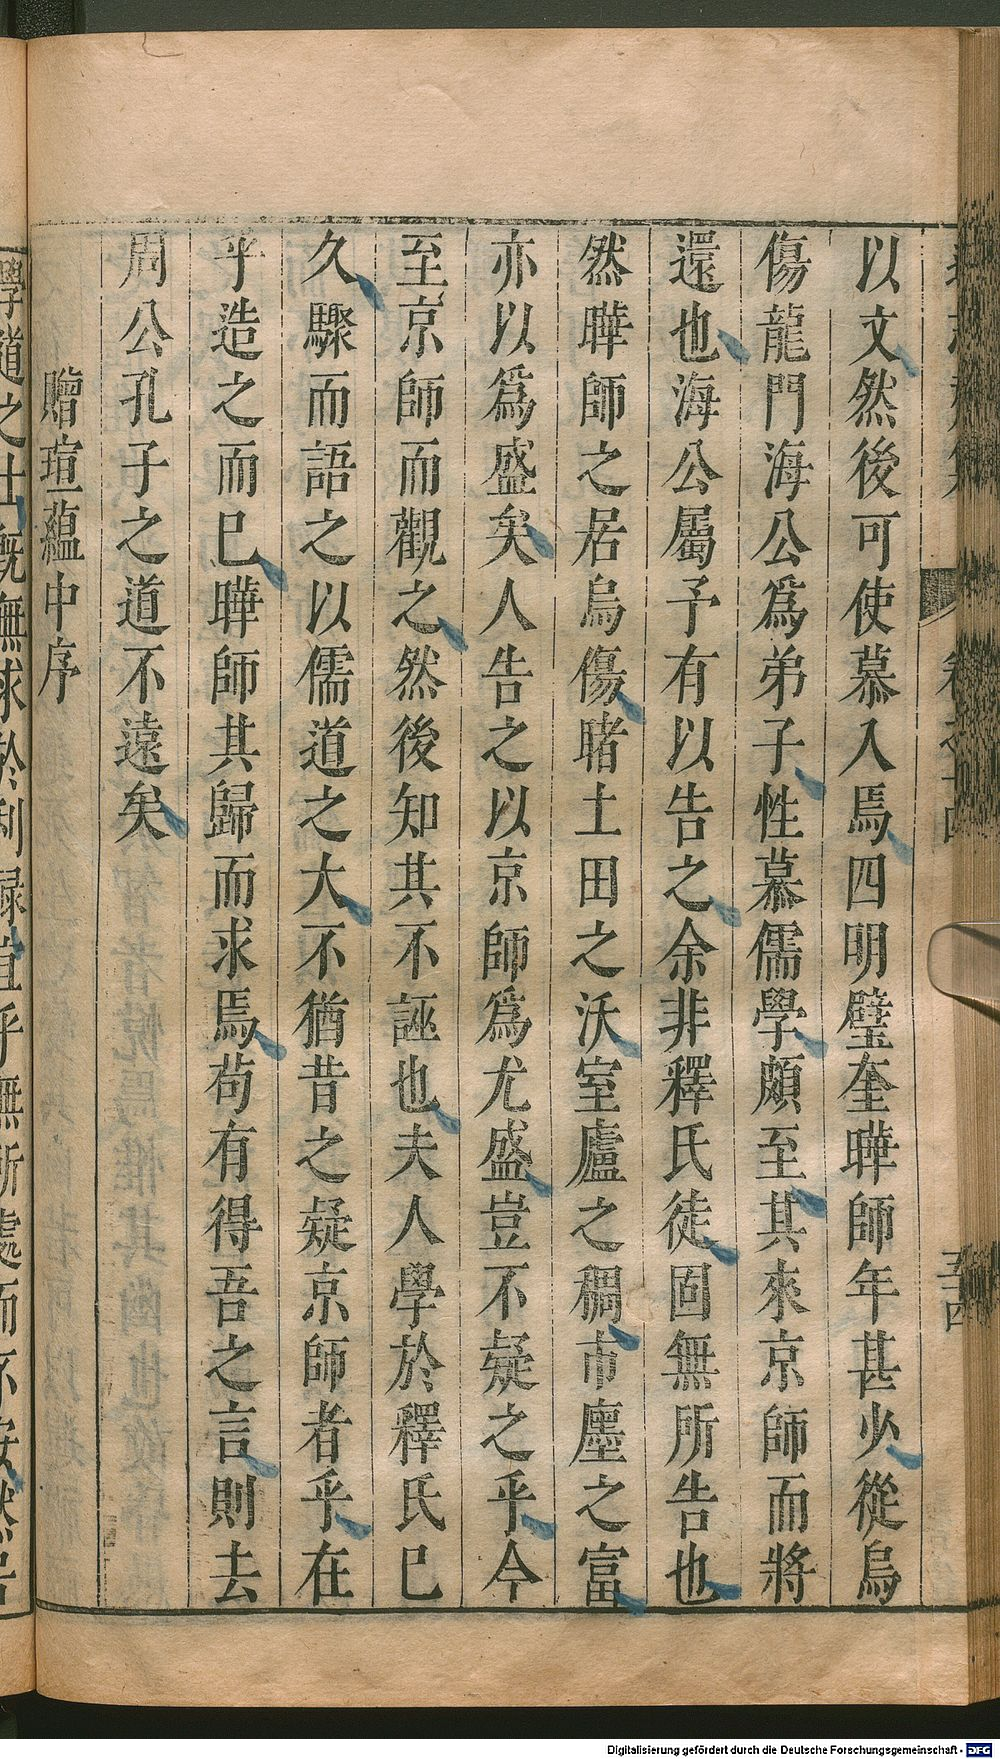 以文然後可使慕入焉四明璧奎曄師年甚少從烏
傷龍門海公爲弟子性慕儒學頗至其來京師而將
還也海公屬予有以告之余非釋氏徒固無所告也
然曄師之居烏傷睹土田之沃室廬之稠市廛之富
亦以爲盛矣人告之以京師爲尤盛豈不疑之乎今
至京師而觀之然後知其不誣也夫人學於釋氏已
久驟而語之以儒道之大不猶昔之疑京師者乎在
乎造之而已曄師其歸而求焉苟有得吾之言則去
周公孔子之道不遠矣
贈瑄蘊中序
學道之士既無求於利祿且乎無所處而不安然居
Digitalisierung gefördert durch die Deutsche Forschungsgemeinschaft - DFG